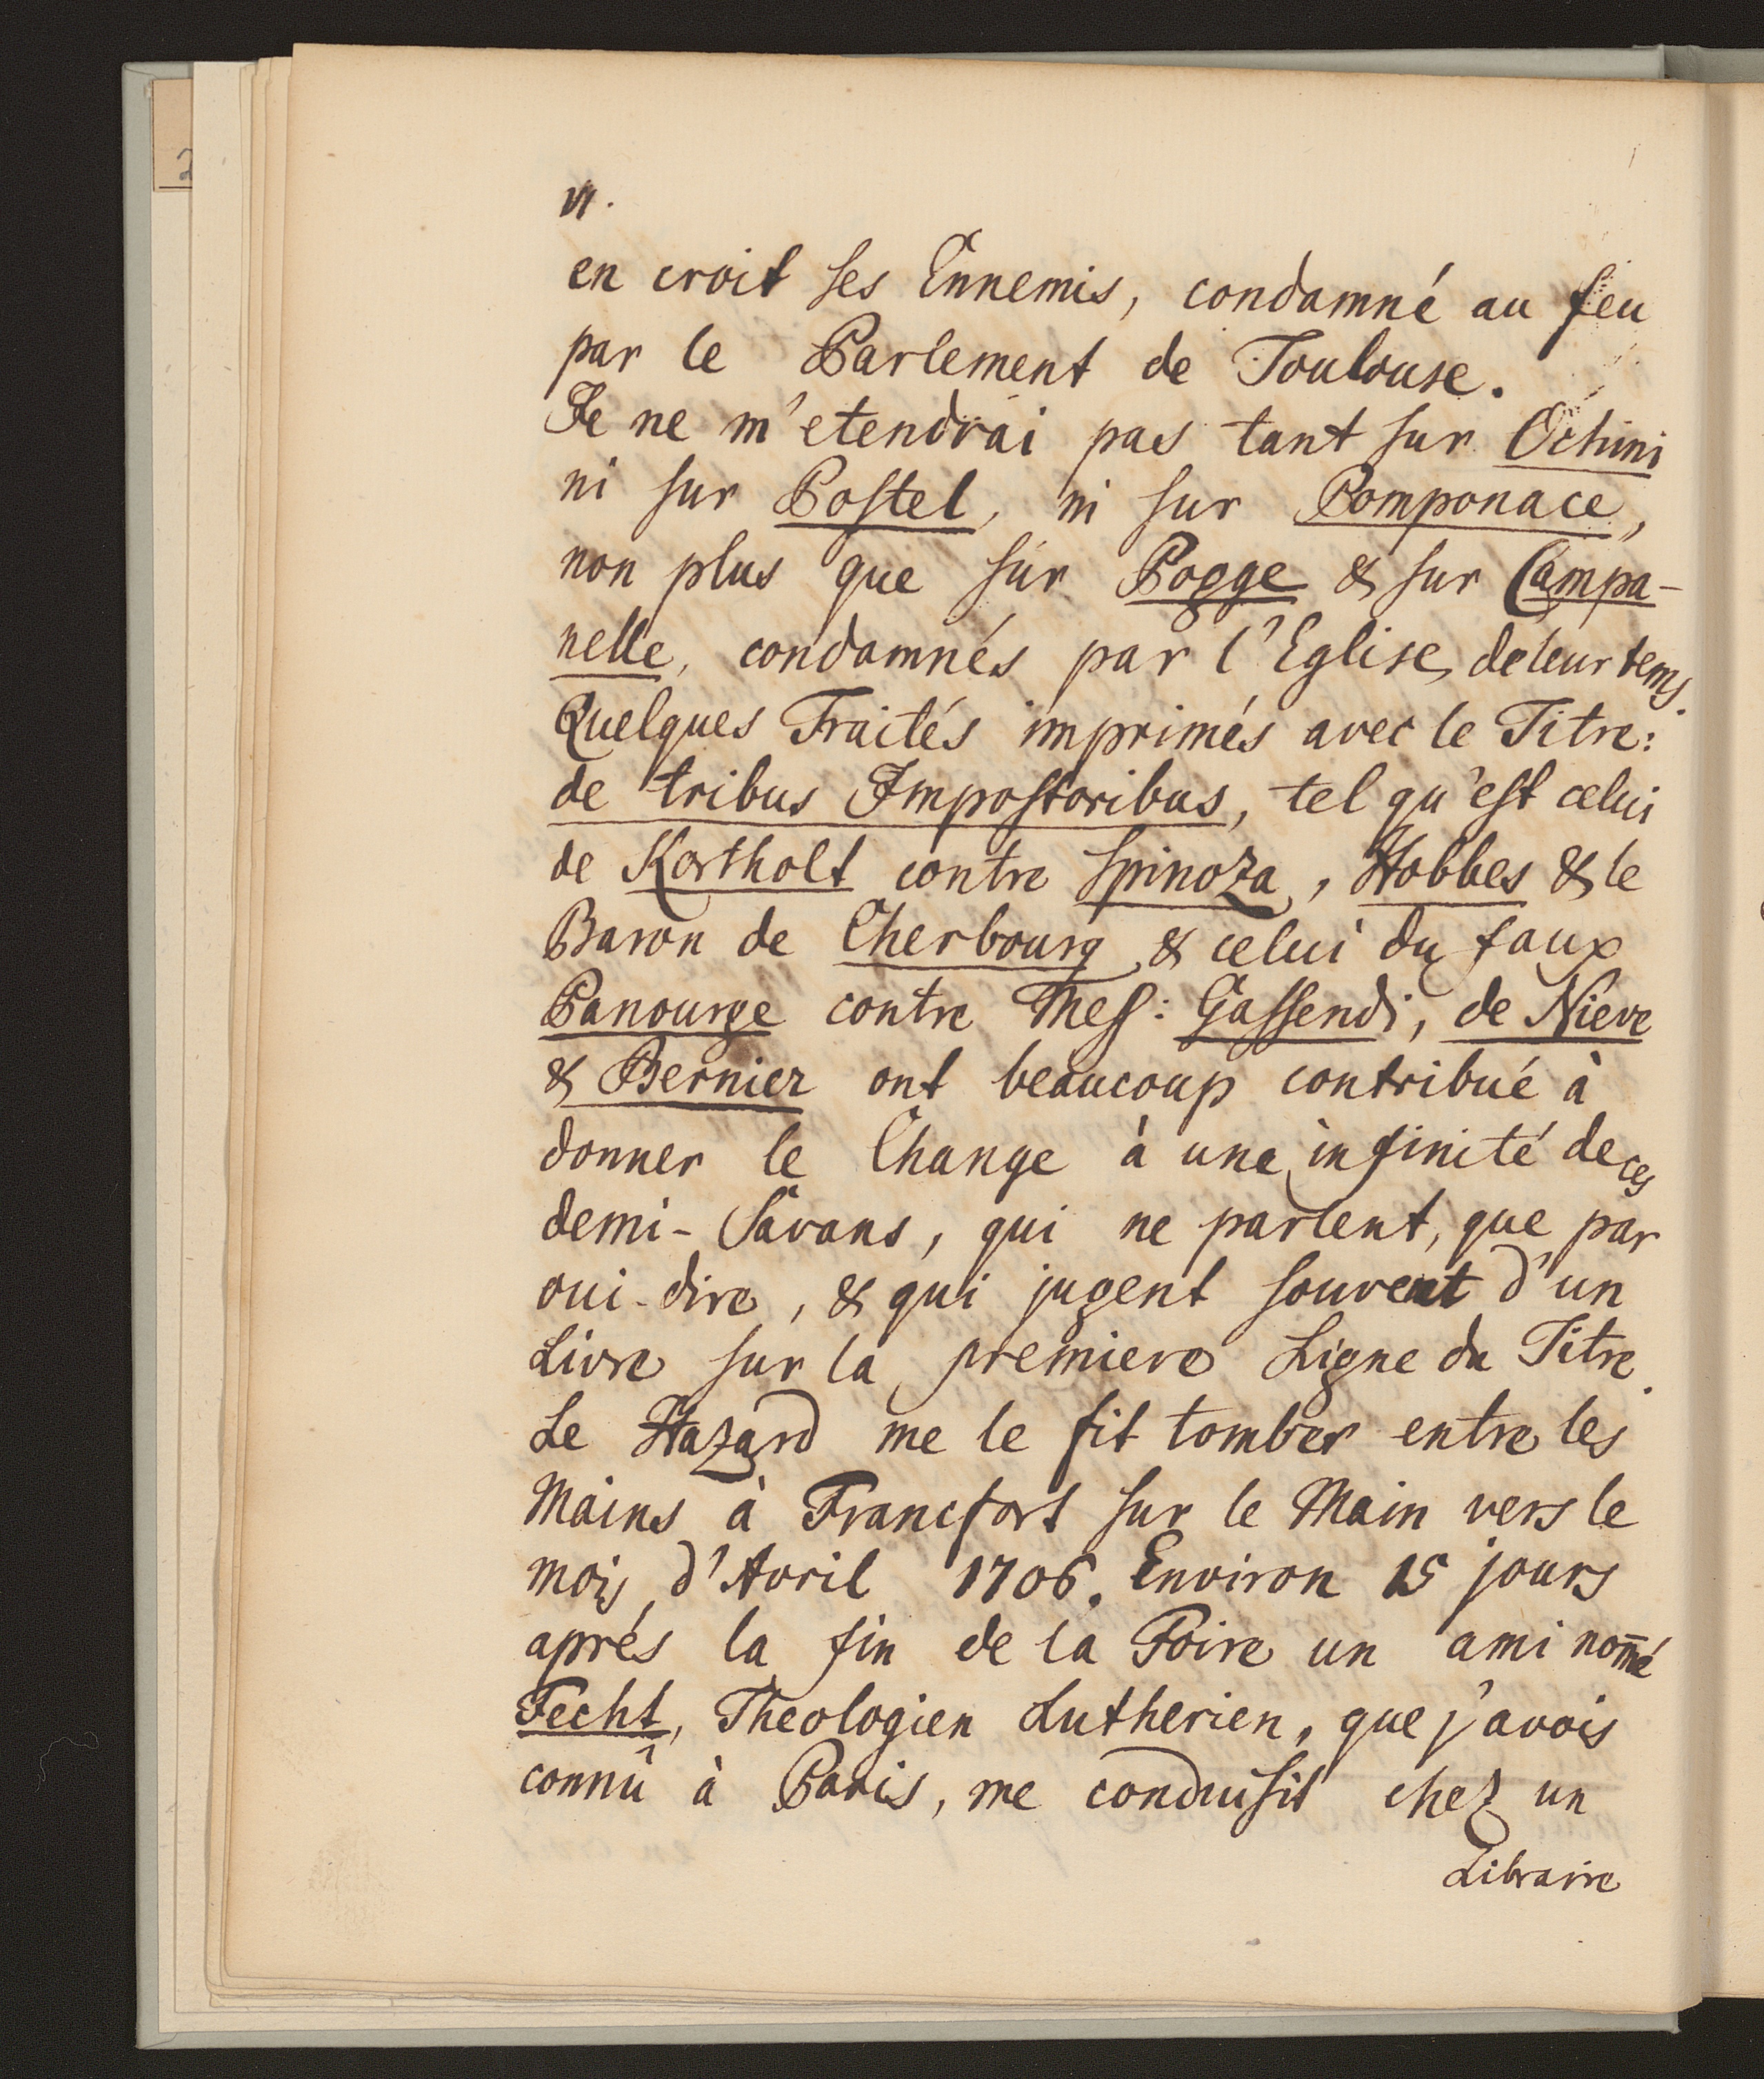 2
VI.
en croit ses Ennemis, condamné au feu
par le Parlement de Toulouse.
Je ne m'etendrai pas tant sur Ochini
ni sur Postel, ni sur Pomponace,
non plus que sur Pogge & sur Campa-
nelle, condamnés par l'Eglise de leur tems.
Quelques Traités imprimés avec le Titre:
de tribus Impostoribus, tel qu'est celui
de Kortholt contre Spinoza, Hobbes & le
Baron de Cherbourg & celui du faux
Panourge contre Mess: Gassendi, de Nieve
& Bernier ont beaucoup contribué à
donner le Change à une infinité de ces
demi-Savans, qui ne parlent, que par
oui-dire, & qui jugent souvent d'un
Livre sur la premiere Ligne du Titre.
Le Hazard me le fit tomber entre les
Mains à Francfort sur le Main vers le
mois d'Avril 1706. Environ 15 jours
aprés la fin de la Foire un ami nom̄é
Fecht, Theologien Lutherien, que j'avois
connû à Paris, me conduisit chez un
Libraire